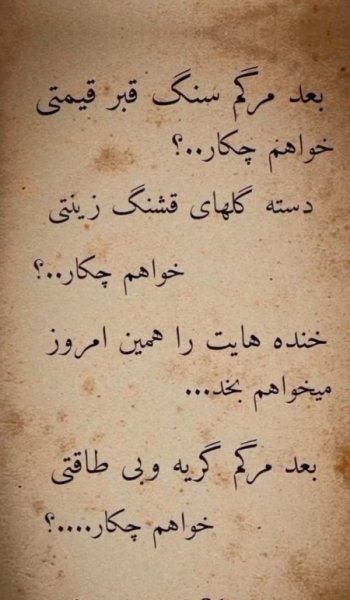 بعد مرگم سنگ قبر قیمتی
خواهم چکار..؟
دسته گلهای قشنگ زینتی
خواهم چکار..؟
خنده هایت را همین امروز
میخواهم بخد...
بعد مرگم گریه وبی طاقتی
خواهم چکار....؟